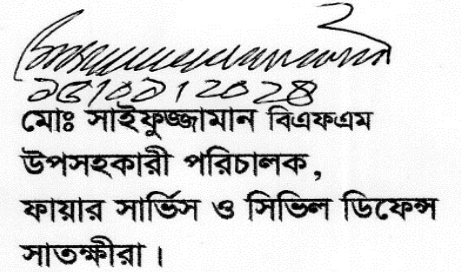 মোঃ সাইফুজ্জামান বিএফএম
উপসহকারী পরিচালক,
ফায়ার সার্ভিস ও সিভিল ডিফেন্স
সাতক্ষীরা।